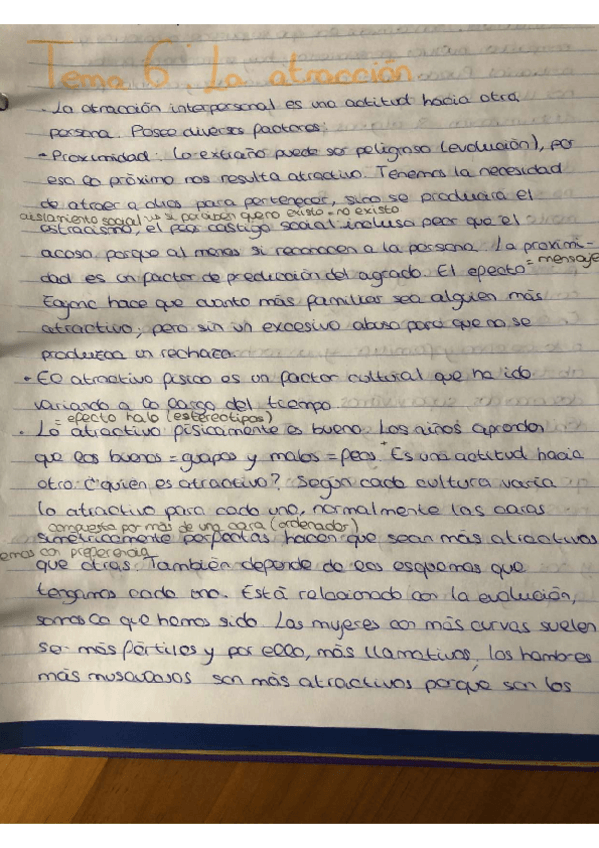 Tema 6: La atracción
· La atracción interpersonal es una actitud hacia otra
persona. Posee diversos factores:
- Proximidad: Lo extraño puede ser peligroso (evolución), por
eso lo próximo nos resulta atractivo. Tenemos la necesidad
de atraer a otros para pertenecer, sino se producirá el
aislamiento social si perciben que no existo = no existo
ostracismo, el peor castigo social incluso peor que el
acoso porque al menos si reconocen a la persona. La proximi-
dad es un factor de predicción del agrado. El efecto = mensaje
hace que cuanto más familiar sea alguien más
atractivo; pero sin un excesivo abuso para que no se
produzca un rechazo.
· El atractivo físico es un factor cultural que ha ido
variando a lo largo del tiempo.
= efecto halo (estereotipos)
· Lo atractivo físicamente es bueno. Los niños aprenden
que los buenos = guapos y malos = feos. + Es una actitud hacia
otro. ¿quién es atractivo? Según cada cultura varía
lo atractivo para cada uno, normalmente las caras
compuesta por más de una cara (ordenador)
simétricamente perfectas hacen que sean más atractivos
emas con preferencia
que otras. También depende de los esquemas que
tengamos cada uno. Está relacionado con la evolución,
somos lo que hemos sido. Las mujeres con más curvas suelen
ser más fértiles y por ello, más llamativos, los hombres
más musculosos son más atractivos porque son los